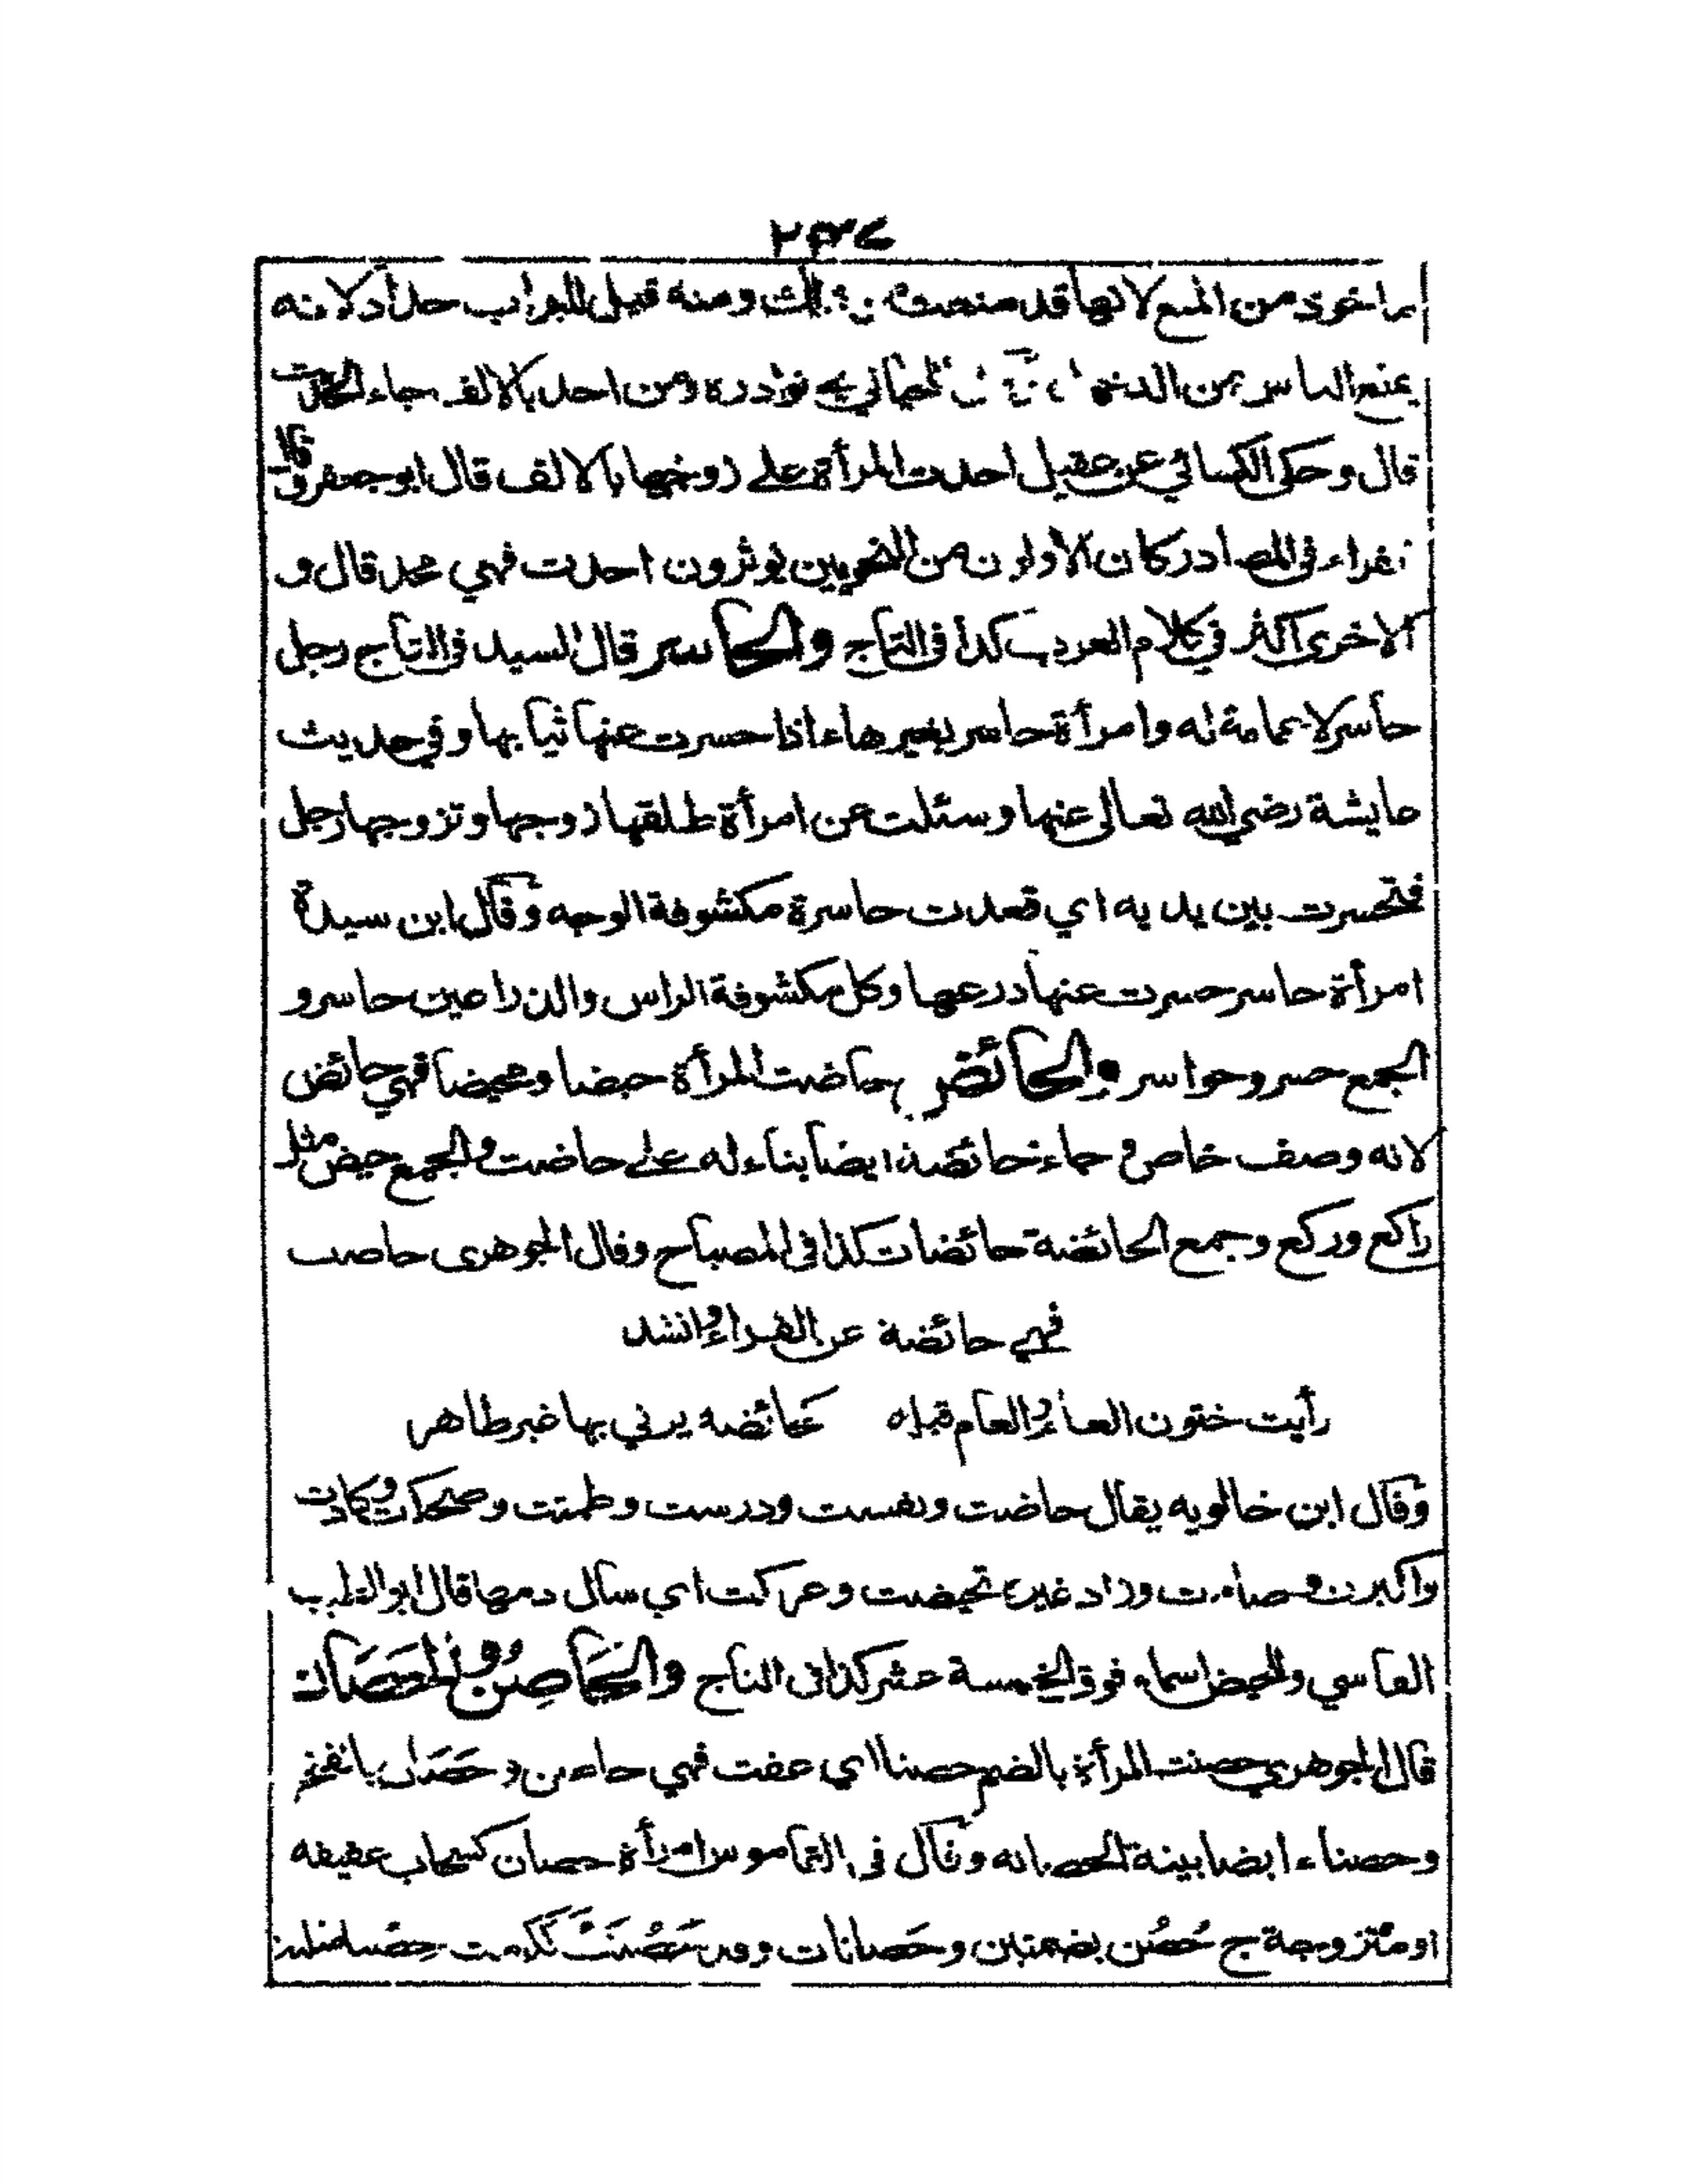 ٢٣٧
ماخوذ من المنع لانها قد منعت من ذلك ومنه قيل للبواب حداد لانه
يمنع الناس من الدخول اللحياني في نوادره ومن احد بالالف جاء الحديث
قال وحكى الكسائي عن عقيل احدت المرأة على زوجها بالالف قال ابو جعفر وقال
الفراء في المصادر كان الاولون من النحويين يوثرون احدت فهي محد قال و
الاخرى اكثر في كلام العرب كذا في التاج والحاسر قال السيد في التاج رجل
حاسر لا عمامة له وامرأة حاسر بغير هاء اذا حسرت عنها ثيابها وفي حديث
عايشة رضي الله تعالى عنها وسئلت عن امرأة طلقها زوجها وتزوجها رجل
فتحسرت بين يديه اي قعدت حاسرة مكشوفة الوجه وقال ابن سيدة
امرأة حاسر حسرت عنها درعها وكل مكشوفة الراس والذراعين حاسر و
الجمع حسر وحواسر والحائض حاضت المرأة حيضا ومحيضا فهي حائض
لانه وصف خاص و جاء حائضة ايضا بناء له على حاضت والجمع حيض مثل
راكع وركع وجمع الحائضة حائضات كذا في المصباح وقال الجوهرى حاضت
فهي حائضة عن الفراء وانشد
رأيت ختون العام والعام قبله كحائضة يزني بها غير طاهر
وقال ابن خالويه يقال حاضت ونفست ودرست وطمثت وضحكت وكادت
واكبرت وصامت وزاد غيره تحيضت وعركت اي سال دمها قال ابو الطيب
الفاسي وللحيض اسماء فوق الخمسة عشر كذا في التاج والحَاصِنُ والحَصَان
قال الجوهري حصنت المرأة بالضم حصنا اي عفت فهي حاصن و حَصَان بالفتح
وحصناء ايضا بينة الحصانه وقال في القاموس امرأة حصان كسحاب عفيفه
او متزوجة ج حُصُن بضمتين وحَصانات وقد حَصُنَتْ ككرمت حصنا مثلثة